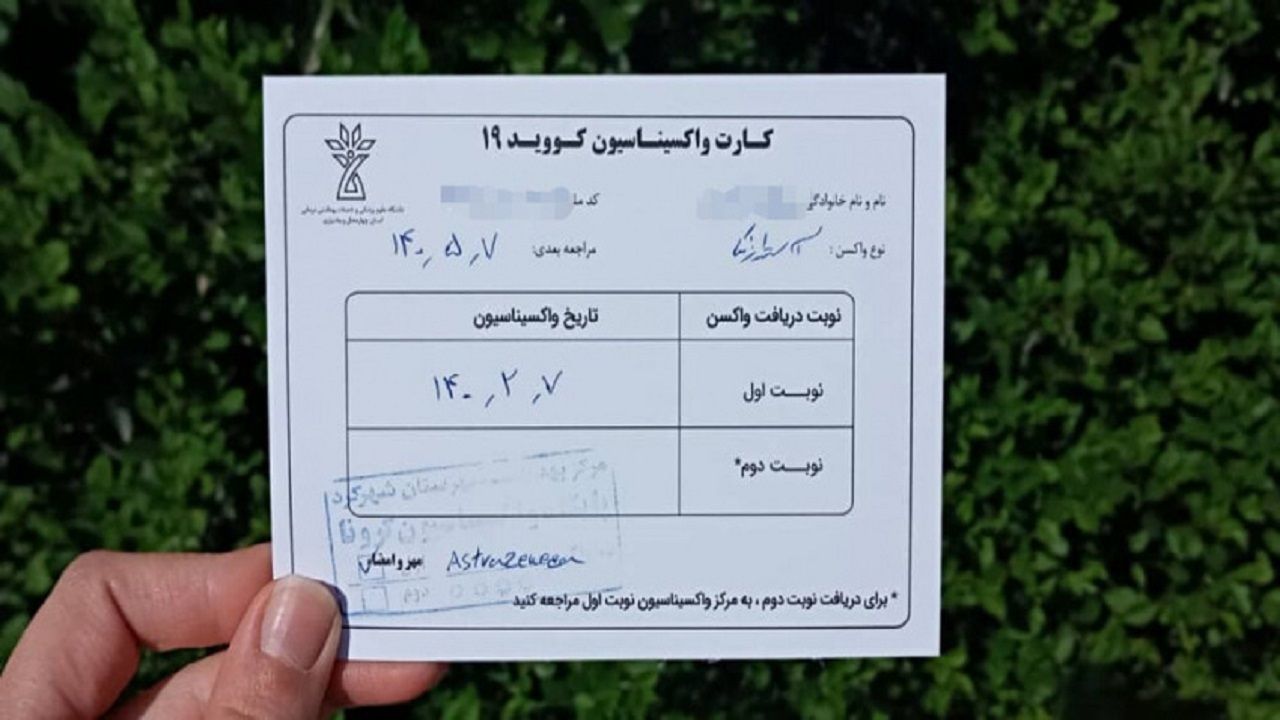 کارت واکسیناسیون کووید ۱۹
دانشگاه علوم پزشکی و خدمات بهداشتی درمانی
استان چهارمحال و بختیاری
نام و نام خانوادگی
کد مل
نوع واکسن : آسترازنکا
مراجعه بعدی: ۱۴۰۰٫۵٫۷
نوبت دریافت واکسن
تاریخ واکسیناسیون
نوبت اول
۱۴۰۰٫۲٫۷
نوبت دوم*
شهرستان شهرکرد
واکسیناسیون کرونا
مهر و امضا
AstraZeneca
دوم
* برای دریافت نوبت دوم ، به مرکز واکسیناسیون نوبت اول مراجعه کنید